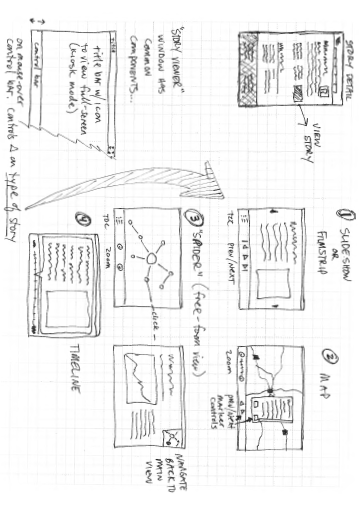 STORY DETAIL
VIEW
STORY
"STORY VIEWER"
WINDOW HAS
COMMON
COMPONENTS...
title bar w/icon
to view full-screen
(kiosk mode)
control bar
on mouse-over
control bar, controls Δ on type of story
① SLIDESHOW
OR
FILMSTRIP
TOC PREV/NEXT
② MAP
ZOOM
PREV/NEXT
MARKER
CONTROLS
③ "SPIDER" (free-form view)
TOC ZOOM
click
NAVIGATE
BACK TO
MAIN
VIEW
④ TIMELINE